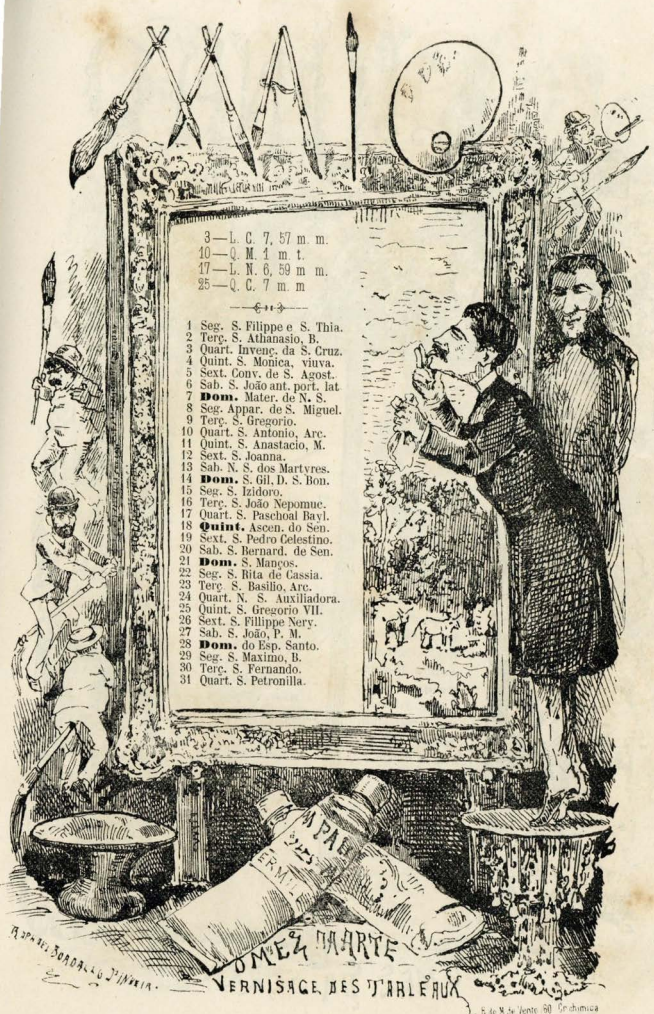 MAIO
3—L. C. 7, 57 m. m.
10—Q. M. 1 m. t.
17—L. N. 6, 59 m m.
25—Q. C. 7 m. m
1 Seg. S. Filippe e S. Thia.
2 Terç. S. Athanasio, B.
3 Quart. Invenç. da S. Cruz.
4 Quint. S. Monica, viuva.
5 Sext. Conv. de S. Agost.
6 Sab. S. João ant. port. lat
7 Dom. Mater. de N. S.
8 Seg. Appar. de S. Miguel.
9 Terç. S. Gregorio.
10 Quart. S. Antonio, Arc.
11 Quint. S. Anastacio, M.
12 Sext. S. Joanna.
13 Sab. N. S. dos Martyres.
14 Dom. S. Gil, D. S. Bon.
15 Seg. S. Izidoro.
16 Terç. S. João Nepomuc.
17 Quart. S. Paschoal Bayl.
18 Quint. Ascen. do Sen.
19 Sext. S. Pedro Celestino.
20 Sab. S. Bernard. de Sen.
21 Dom. S. Manços.
22 Seg. S. Rita de Cassia.
23 Terç. S. Basilio, Arc.
24 Quart. N. S. Auxiliadora.
25 Quint. S. Gregorio VII.
26 Sext. S. Fillippe Nery.
27 Sab. S. João, P. M.
28 Dom. do Esp. Santo.
29 Seg. S. Maximo, B.
30 Terç. S. Fernando.
31 Quart. S. Petronilla.
OMEZ DAARTE
VERNISAGE DES TABLEAUX
RAPHAEL BORDALLO PINHEIRO.